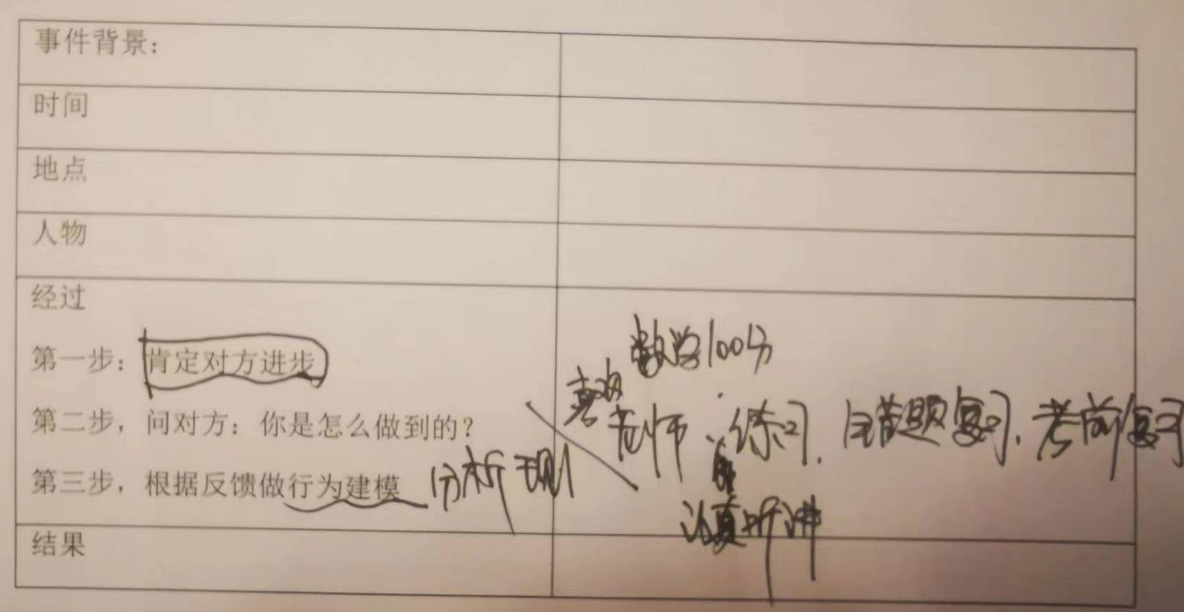 事件背景：
时间
地点
人物
经过
数学100分
第一步：肯定对方进步
第二步，问对方：你是怎么做到的？
老师、练习、错题复习、考前复习
第三步，根据反馈做行为建模 分析
认真听讲
结果